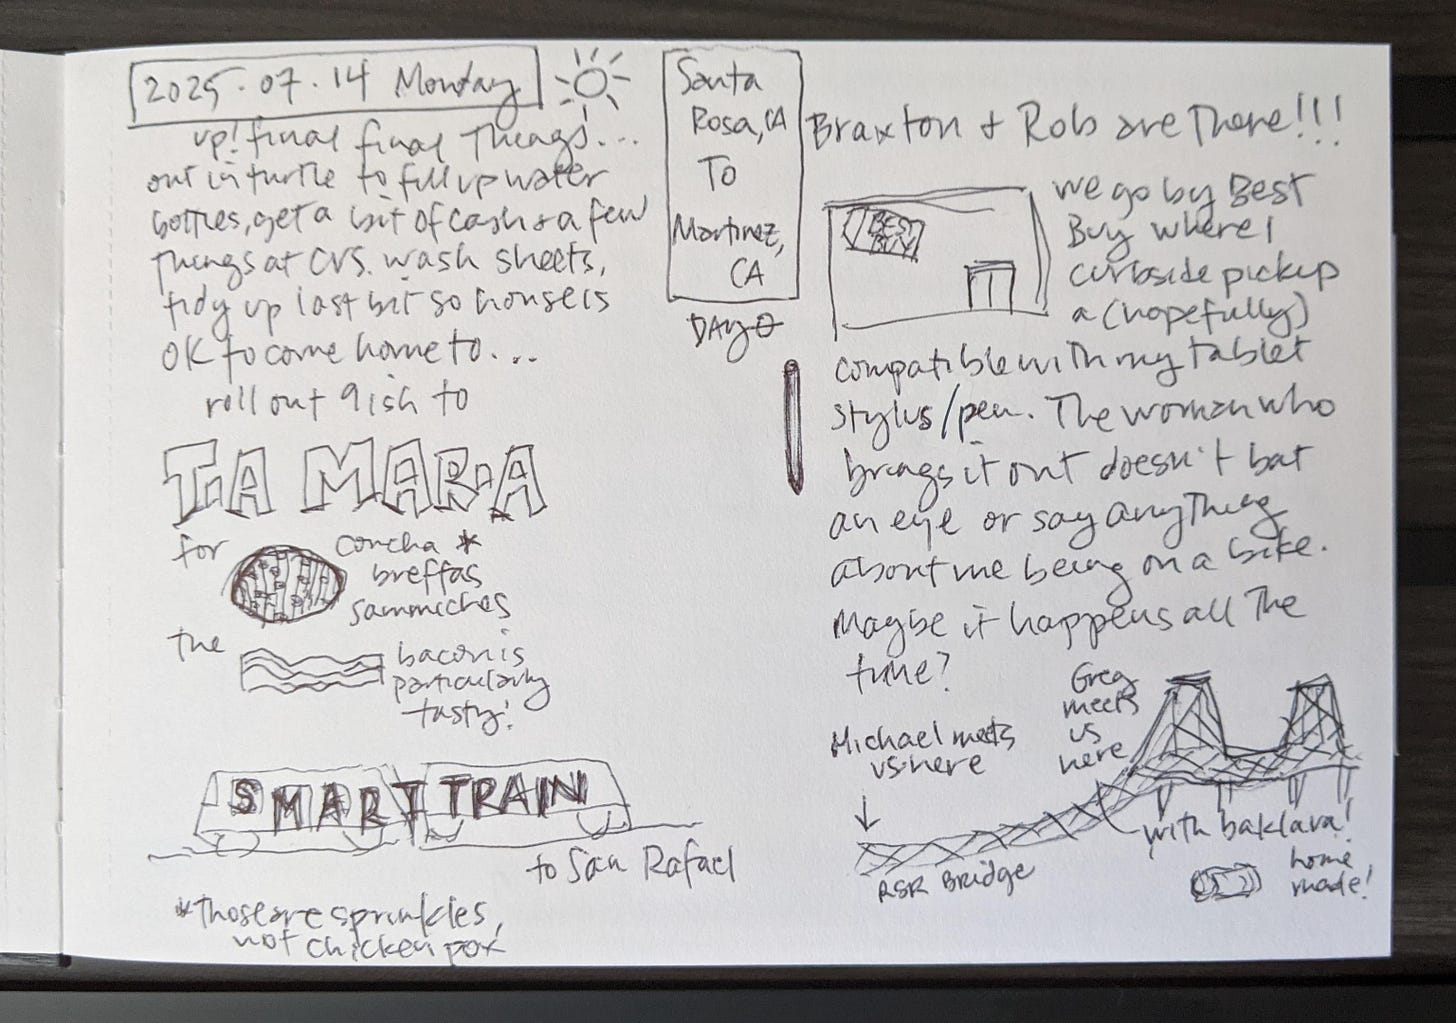 2025.07.14 Monday
up! final final Things...
out in turtle to fill up water
bottles, get a bit of cash & a few
Things at CVS. wash sheets,
tidy up last bit so house is
OK to come home to...
roll out 9ish to
TIA MARIA
for
concha *
breffas
sammiches
the
bacon is
particularly
tasty!
SMART TRAIN
to San Rafael
*those are sprinkles,
not chicken pox
Santa
Rosa, CA
To
Martinez,
CA
DAY 0
Braxton + Rob are There!!!
BEST
BUY
we go by Best
Buy where I
curbside pickup
a (hopefully)
compatible with my tablet
stylus/pen. The woman who
brings it out doesn't bat
an eye or say anything
about me being on a bike.
Maybe it happens all the
time?
Michael meets
us here
Greg
meets
us
here
with baklava!
home
made!
RSR Bridge